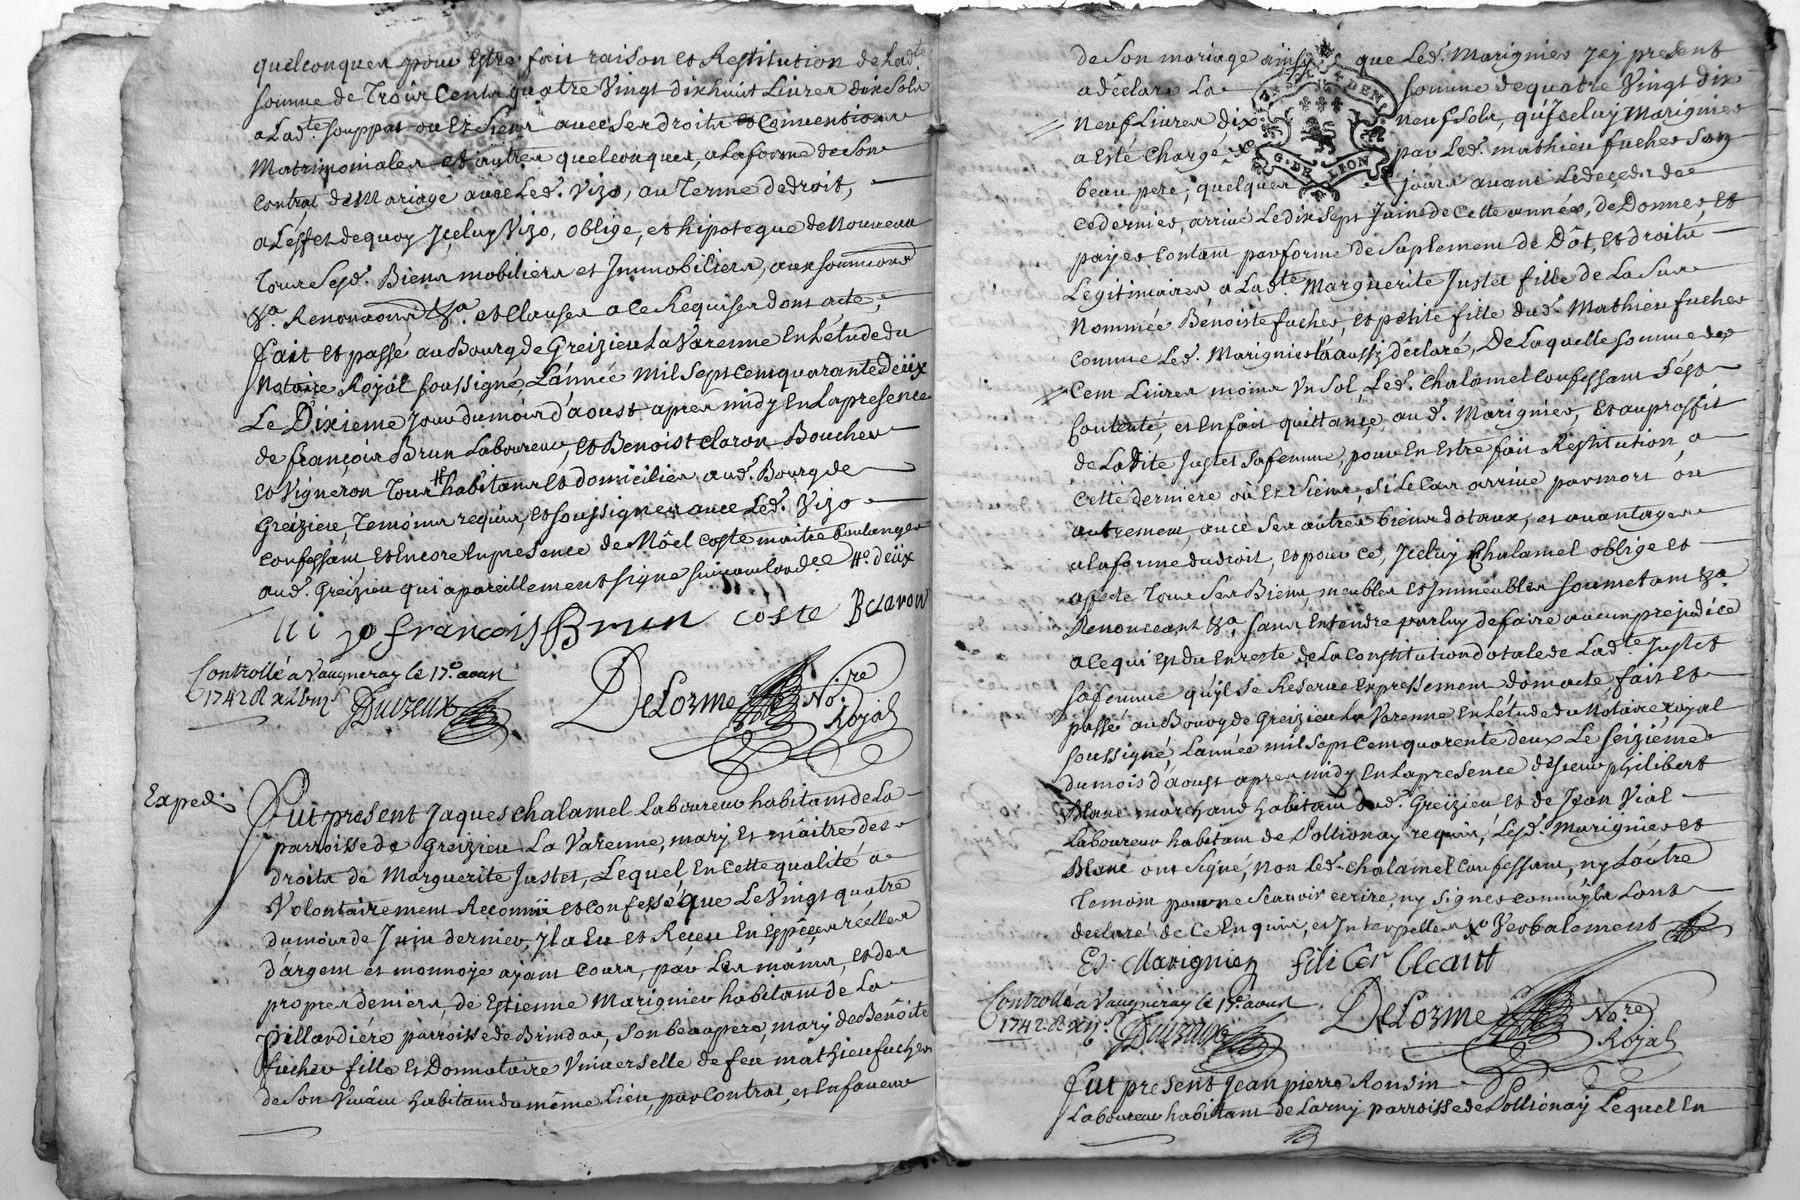 quelconques pour Estre fait raison et Restitution de Lad.te
somme de Trois Cents quatre Vingt dix huit Livres dix Sols
a Lad.te Jouppat ou Et Siens avec Ses droits et Conventions
Matrimoniales et autres quelconques, a la forme de Son
Contrat de Mariage avec Led. Vizo, au Terme de droit,
a L'effet de quoy Jceluy Vizo, oblige, et hipoteque de Nouveau
Tous Sesd. Biens mobiliers et Jmmobiliers, aux soumions
&a. Renonaons &a. et Clauses a ce Requises dont acte,
fait et passé au Bourg de Greizieu La Varenne En L'étude du
Notaire Royal soussigné, L'année Mil Sept Cent quarante Deux
Le Dixieme Jour du mois d'aoust apres midy En La presence
de françois Brun Laboureur, et Benoist Claron Boucher
et Vigneron Tous habitans et domiciliés aud. Bourg de
Greizieu, Temoins requis, et soussignes avec Led. Vizo
Confessant et Encore En presence de Nöel Coste maitre boulanger
aud. Greizieu qui a pareillement signé
Vizo francois Brun coste B claron
Controllé a Vaugneray le 17e. aoust
1742 R
Duizeux
DeLorme No.re
Royal
Exped.
Fut present Jaques Chalamel Laboureur habitant de La
parroisse de Greizieu La Varenne, mary et maitre des
droits de Marguerite Justet, Lequel En Cette qualité a
Volontairement Reconnü et Confessé que Le Vingt quatre
du mois de Juin dernier, Jl a Eu et Receu En Espèces réelles
d'argent et monnoye ayant Cours, par Les mains, et des
propres deniers, de Estienne Marignier habitant de La
pillardiere parroisse de Brindas, son beaupere, mary de Benôite
fucher fille et Donnataire Universelle de feu mathieu fucher
de Son Vivant habitant du même Lieu, par Contrat, et En faveur
de Son mariage ainsy que Led. Marignier Jcy present
a déclaré La somme de quatre Vingt dix
Neuf Livres dix neuf Sols, qu'Jceluy Marignier
a Esté Chargé par Led. mathieu fucher Son
beau pere, quelques jours avant Le deces de
ce dernier, arrivé Le dix Sept Juin de Cette année, de Donner, et
payer Contant par forme de Suplement de Dôt, et droits
Legitimaires, a Lad.te Marguerite Justet fille de La Sur
Nommée Benoiste fucher, et petite fille dud. Mathieu fucher
Comme Led. Marignier l'a aussi déclaré, De Laquelle somme de
Cent Livres moins Un Sol, Led. Chalamel Confessant S'est
Contenté, et En fait quittance, aud. Marignier, et au proffit
de Ladite Justet Sa femme, pour En Estre fait Restitution a
Cette derniere où Et Siens, Si Le Cas arrive par mort où
autrement, avec Ses autres biens dotaux, et avantages
a la forme du droit, et pour Ce, Jceluy Chalamel oblige et
affecte Tous Ses Biens, meubles et Jmmeubles soumetant &a.
Renonceant &a. sans Entendre par Luy de faire aucun prejudice
a Ce qui Est du En reste de La Constitution dotale de Lad.te Justet
Sa femme qu'il Se Reserve Expressement dont acte, fait et
passé au Bourg de Greizieu La Varenne En L'étude du Notaire royal
soussigné, L'année mil Sept Cent quarente deux Le Seizième
du mois d'aoust apres midy En La presence de sieur philibert
Blanc marchand habitant aud. Greizieu et de Jean Vial
Laboureur habitant de Pollionay requis, Lesd. Marignier et
Blanc ont Signé, Non Led. Chalamel Confessant, ny L'autre
Temoin pour ne Scavoir ecrire, ny Signer comm'jls L'ont
declaré de Ce Enquis, et Jnterpellés Verbalement
Et. Marignier filiber bleant
Controllé a Vaugneray le 17e. aoust
1742 R
Duizeux
DeLorme No.re
Royal
fut present Jean pierre Ronsin
Laboureur habitant de Larny parroisse de Pollionay Lequel En
G. DE LION